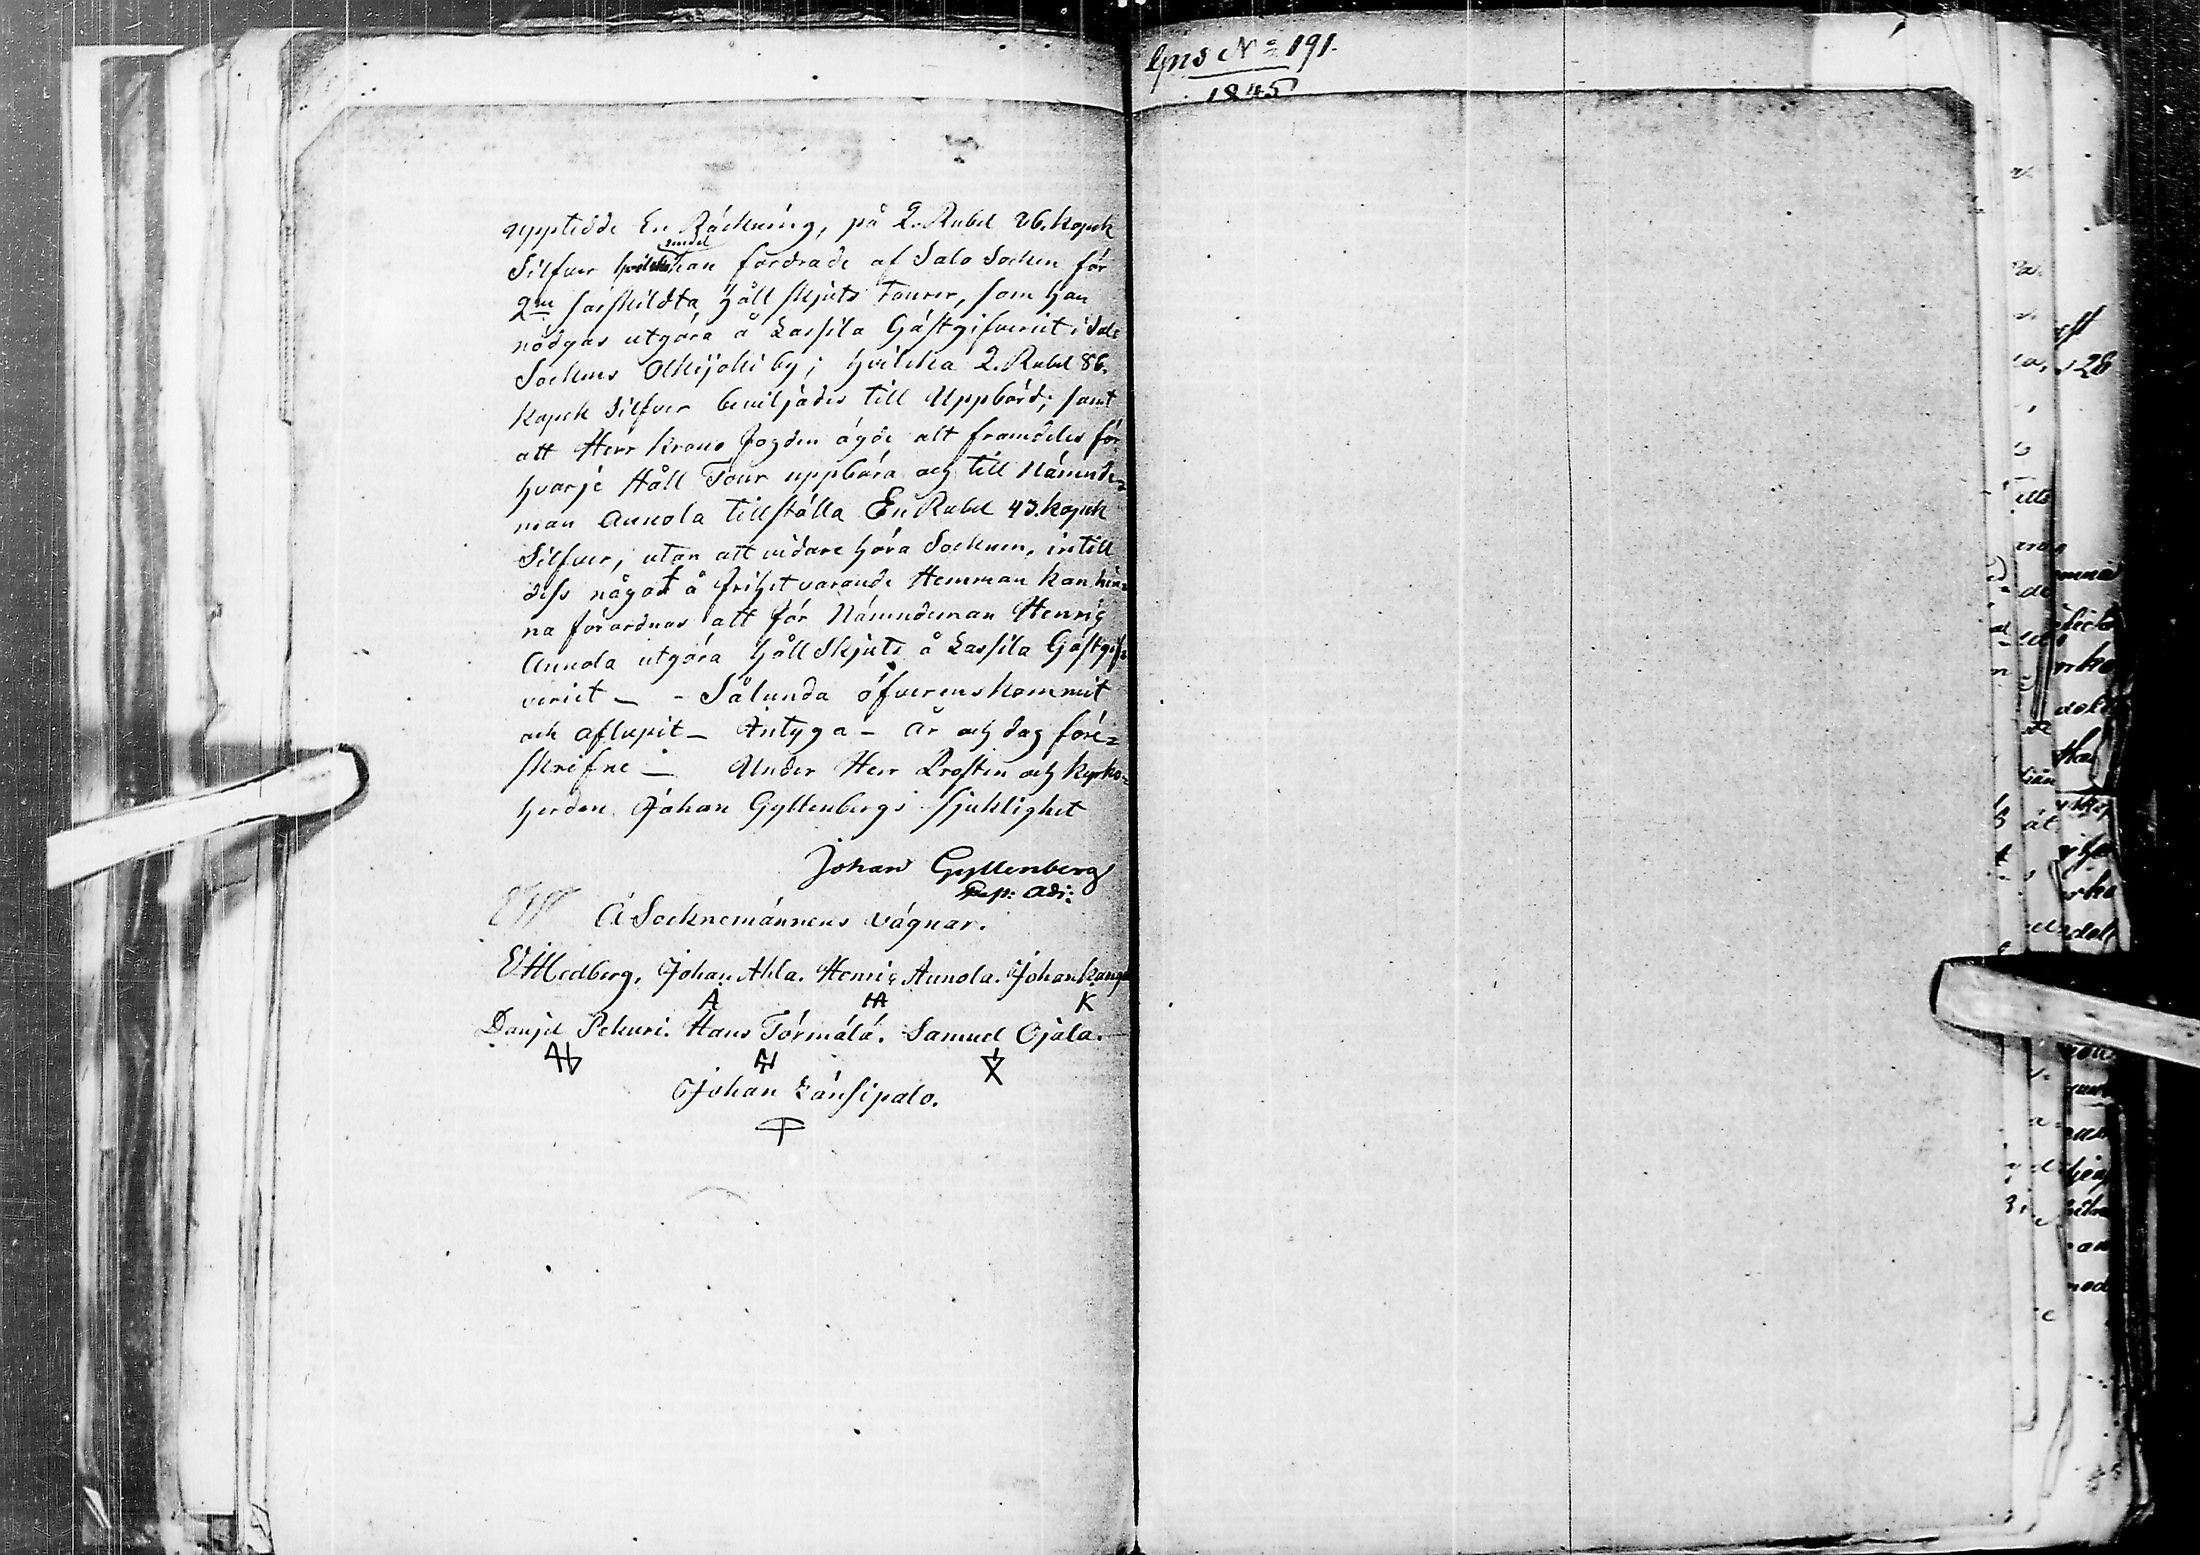 Gns No 191.
1845
upptedde En Räckning, på 2. Rubel 86. kopek
Silfver medel han fordrade af Salo Socken för
2ne särskildta Håll skjuts Tourer, som han
nödgas utgöra å Lassila Gästgifveriet i Salo
Sockens Olkijoki by; hvilcka 2. Rubel 86.
kopek Silfver beviljades till Uppbörd; samt
att Herr Krono Fogden ägde att framdeles för
hvarje Håll Tour uppbära och till Nämnde-
man Aunola tillställa En Rubel 43. kopek
Silfver, utan att vidare höra Socknen, intill
dess något å frihet varande Hemman kan hin-
na förordnas att för Nämndeman Henric
Aunola utgöra Håll Skjuts å Lassila Gästgif-
veriet – - Sålunda öfverenskommit
och aflupit – Intyga – År och dag före-
skrifne – Under Herr Prosten och Kyrko-
herden Johan Gyllenbergs sjuklighet
Johan Gyllenberg
Past: Adj:
Å Socknemännens vägnar.
E Hedberg. Johan Ahla. Henric Aunola. Johan Kanga
A HA K
Danjel Pekuri. Hans Törmälä. Samuel Ojala.
Johan Länsipalo.